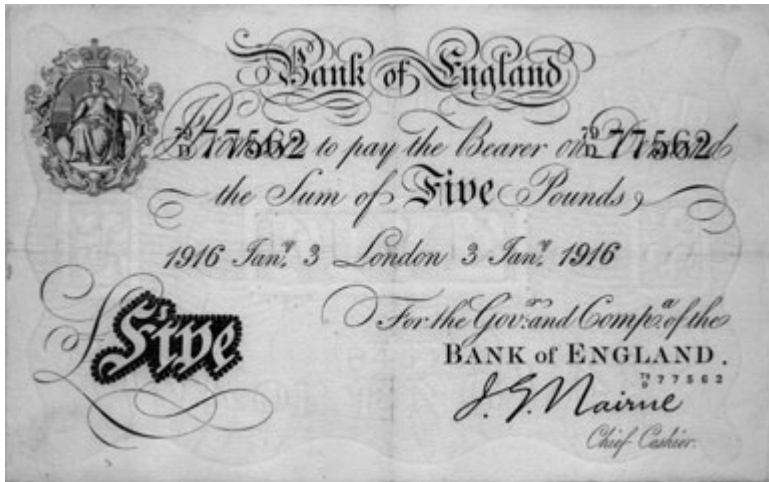 Bank of England
I Promise to pay the Bearer on Demand
79/D 77562 79/D 77562
the Sum of Five Pounds
1916 Jany. 3 London 3 Jany. 1916
For the Govr. and Compa. of the
Five
BANK of ENGLAND.
79/D 77562
J. G. Nairne
Chief Cashier.